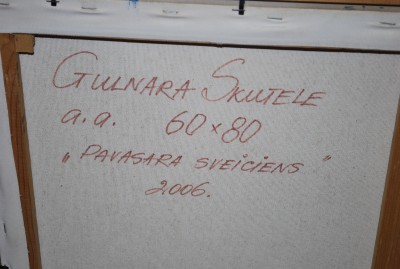 GULNARA SKUTELE
a.a. 60x80
„PAVASARA SVEICIENS"
2006.